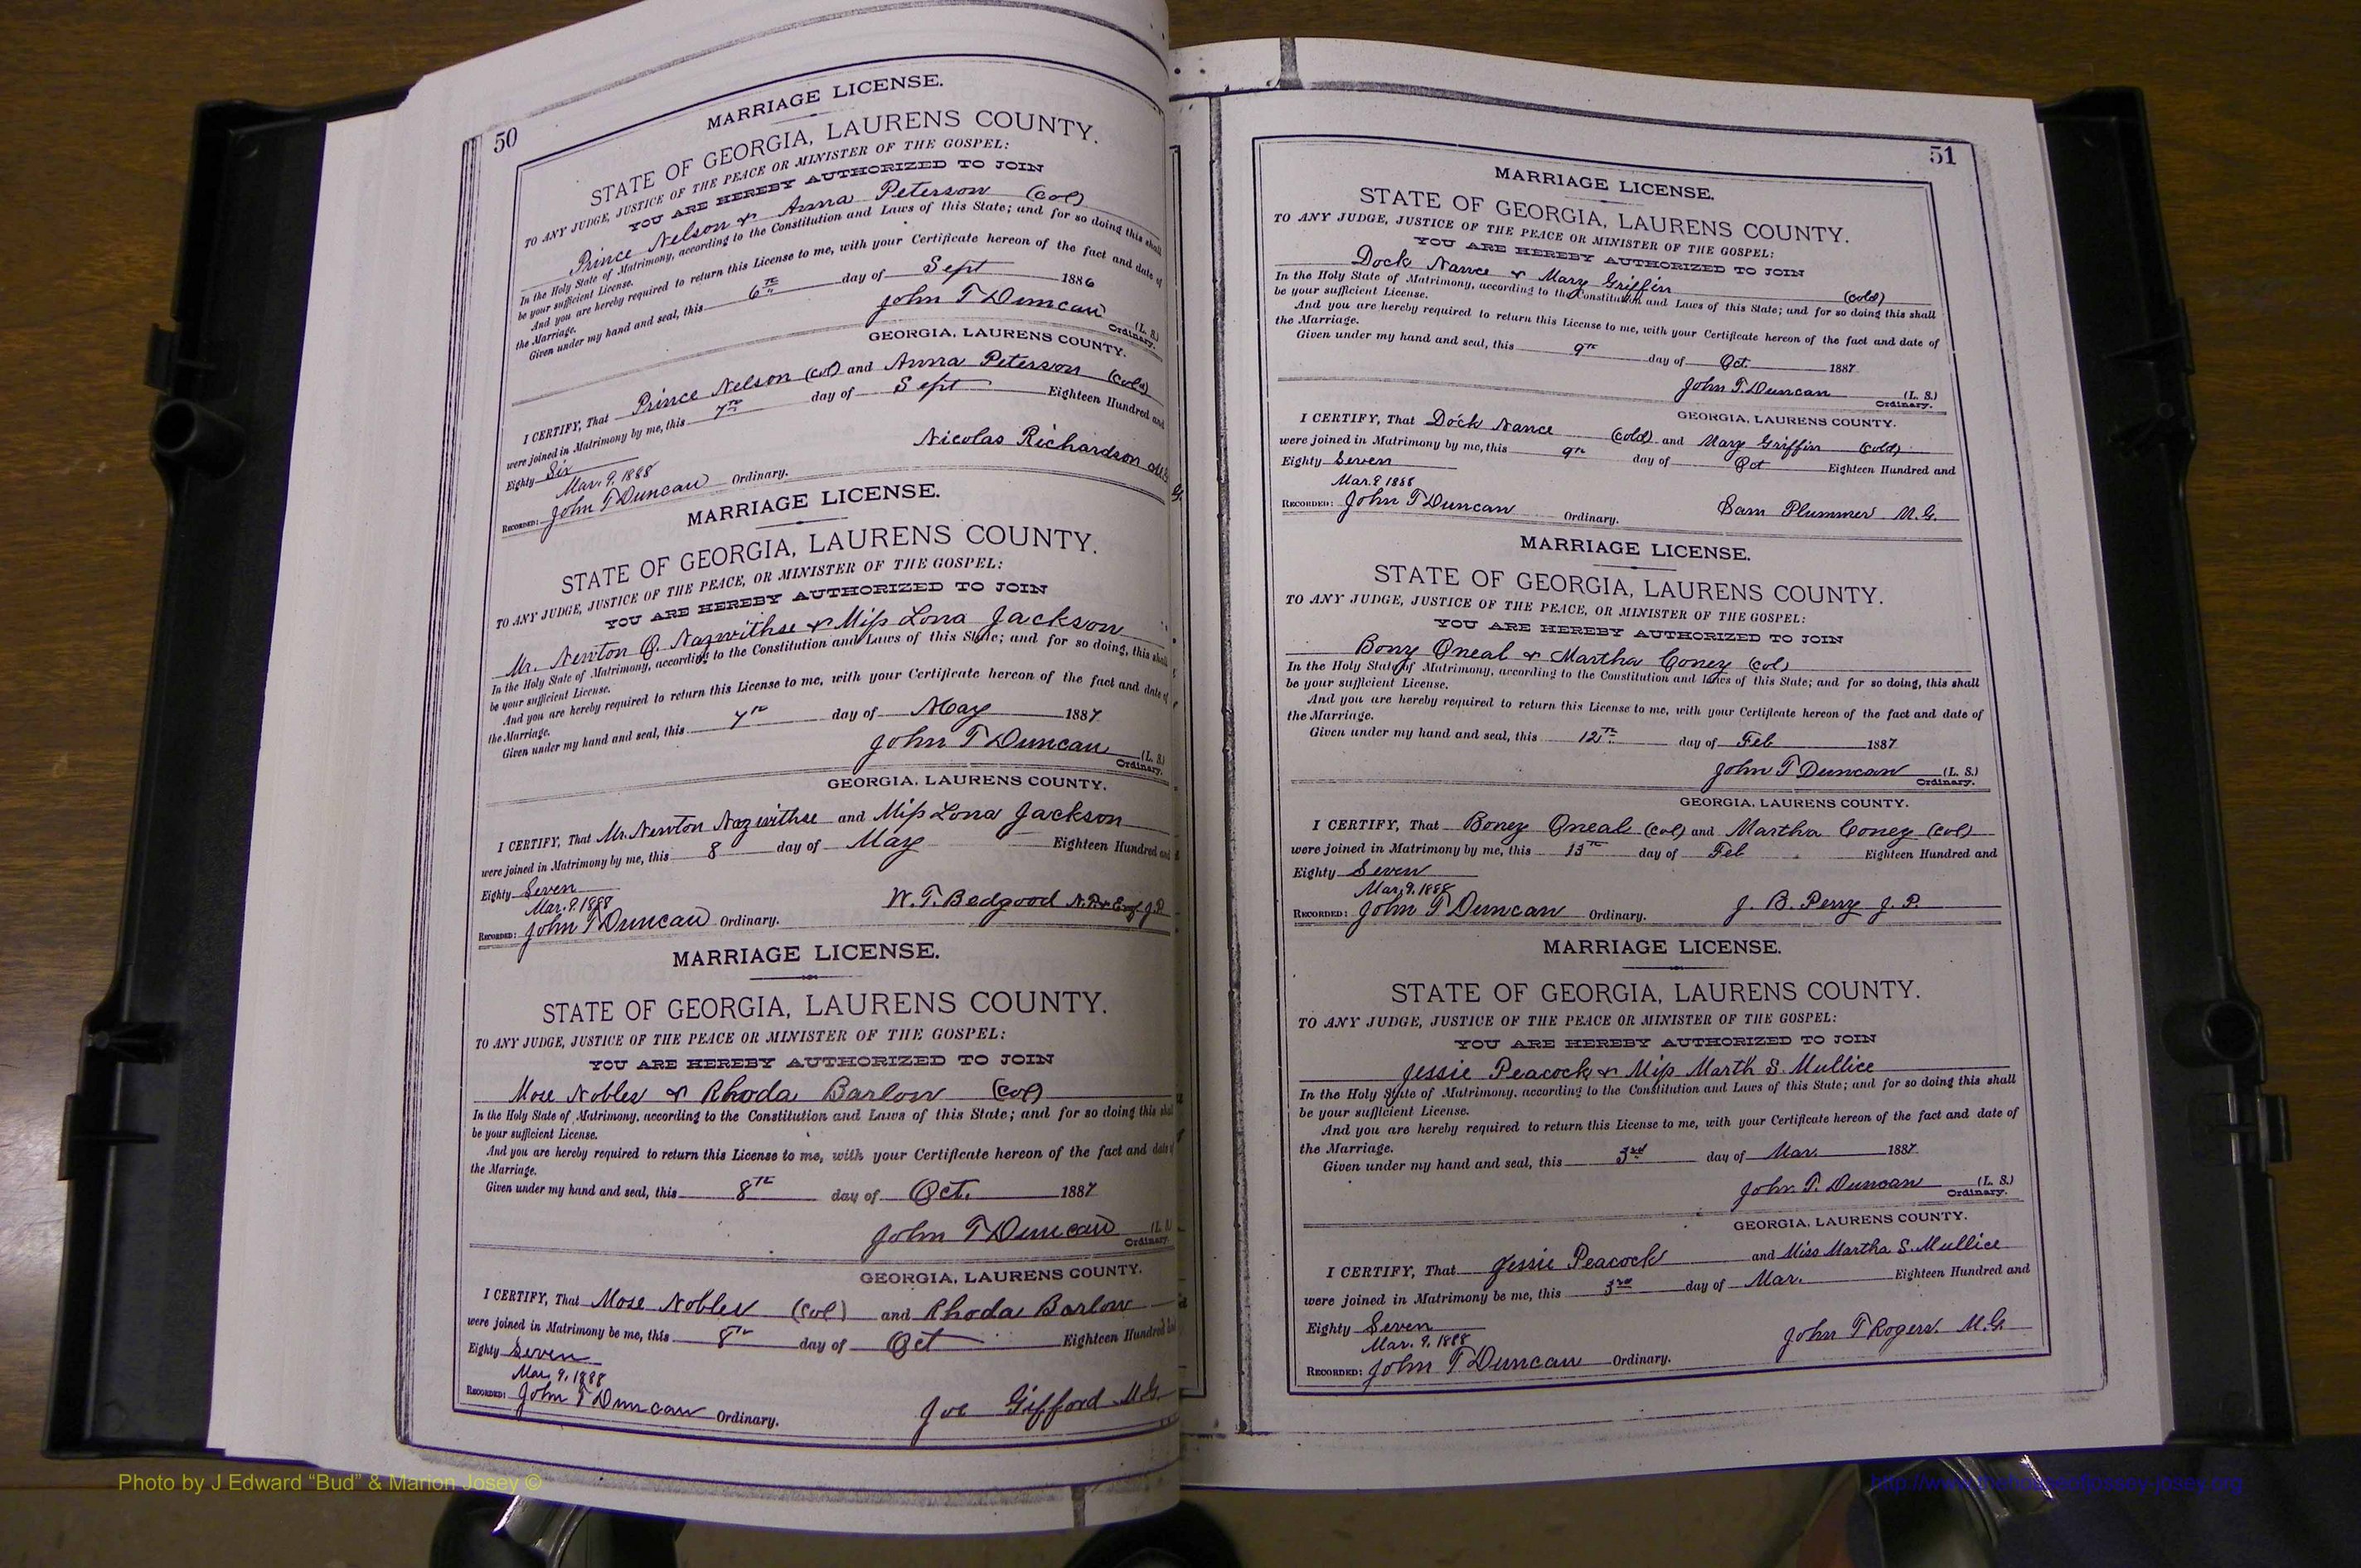 50
MARRIAGE LICENSE.
STATE OF GEORGIA, LAURENS COUNTY.
TO ANY JUDGE, JUSTICE OF THE PEACE OR MINISTER OF THE GOSPEL:
YOU ARE HEREBY AUTHORIZED TO JOIN
Prince Nelson & Anna Peterson (Col)
In the Holy State of Matrimony, according to the Constitution and Laws of this State; and for so doing this shall
be your sufficient License.
And you are hereby required to return this License to me, with your Certificate hereon of the fact and date of
the Marriage.
Given under my hand and seal, this 6th day of Sept 1886
John T Duncan (L. S.)
Ordinary.
GEORGIA, LAURENS COUNTY.
I CERTIFY, That Prince Nelson (Col) and Anna Peterson (Cold)
were joined in Matrimony by me, this 7th day of Sept Eighteen Hundred and
Eighty Six
Nicolas Richardson M.G.
Mar. 9, 1888
RECORDED: John T Duncan Ordinary.
MARRIAGE LICENSE.
STATE OF GEORGIA, LAURENS COUNTY.
TO ANY JUDGE, JUSTICE OF THE PEACE, OR MINISTER OF THE GOSPEL:
YOU ARE HEREBY AUTHORIZED TO JOIN
Mr. Newton Q. Nazwithse & Miss Lona Jackson
In the Holy State of Matrimony, according to the Constitution and Laws of this State; and for so doing, this shall
be your sufficient License.
And you are hereby required to return this License to me, with your Certificate hereon of the fact and date of
the Marriage.
Given under my hand and seal, this 7th day of May 1887
John T Duncan (L. S.)
Ordinary.
GEORGIA, LAURENS COUNTY.
I CERTIFY, That Mr. Newton Nazwithse and Miss Lona Jackson
were joined in Matrimony by me, this 8 day of May Eighteen Hundred and
Eighty Seven
Mar. 9. 1888 W. T. Bedgood N.P. & J.P.
RECORDED: John T Duncan Ordinary.
MARRIAGE LICENSE.
STATE OF GEORGIA, LAURENS COUNTY.
TO ANY JUDGE, JUSTICE OF THE PEACE OR MINISTER OF THE GOSPEL:
YOU ARE HEREBY AUTHORIZED TO JOIN
Mose Nobles & Rhoda Barlow (Col)
In the Holy State of Matrimony, according to the Constitution and Laws of this State; and for so doing this shall
be your sufficient License.
And you are hereby required to return this License to me, with your Certificate hereon of the fact and date of
the Marriage.
Given under my hand and seal, this 8th day of Oct. 1887
John T Duncan (L. S.)
Ordinary.
GEORGIA, LAURENS COUNTY.
I CERTIFY, That Mose Nobles (Col) and Rhoda Barlow
were joined in Matrimony be me, this 8th day of Oct Eighteen Hundred and
Eighty Seven
Mar. 9, 1888
RECORDED: John T Duncan Ordinary. Joe Gifford M.G.
51
MARRIAGE LICENSE.
STATE OF GEORGIA, LAURENS COUNTY.
TO ANY JUDGE, JUSTICE OF THE PEACE OR MINISTER OF THE GOSPEL:
YOU ARE HEREBY AUTHORIZED TO JOIN
Dock Nance & Mary Griffin (Cold)
In the Holy State of Matrimony, according to the Constitution and Laws of this State; and for so doing this shall
be your sufficient License.
And you are hereby required to return this License to me, with your Certificate hereon of the fact and date of
the Marriage.
Given under my hand and seal, this 9th day of Oct. 1887
John T. Duncan (L. S.)
Ordinary.
GEORGIA, LAURENS COUNTY.
I CERTIFY, That Dock Nance (Cold) and Mary Griffin (Cold)
were joined in Matrimony by me, this 9th day of Oct Eighteen Hundred and
Eighty Seven
Mar. 9 1888
RECORDED: John T Duncan Ordinary. Sam Plummer M.G.
MARRIAGE LICENSE.
STATE OF GEORGIA, LAURENS COUNTY.
TO ANY JUDGE, JUSTICE OF THE PEACE, OR MINISTER OF THE GOSPEL:
YOU ARE HEREBY AUTHORIZED TO JOIN
Bony Oneal & Martha Coney (Col)
In the Holy State of Matrimony, according to the Constitution and Laws of this State; and for so doing, this shall
be your sufficient License.
And you are hereby required to return this License to me, with your Certificate hereon of the fact and date of
the Marriage.
Given under my hand and seal, this 12th day of Feb 1887
John T Duncan (L. S.)
Ordinary.
GEORGIA, LAURENS COUNTY.
I CERTIFY, That Boney Oneal (Col) and Martha Coney (Col)
were joined in Matrimony by me, this 13th day of Feb Eighteen Hundred and
Eighty Seven
Mar. 9. 1888
RECORDED: John T Duncan Ordinary. J. B. Perry J. P.
MARRIAGE LICENSE.
STATE OF GEORGIA, LAURENS COUNTY.
TO ANY JUDGE, JUSTICE OF THE PEACE OR MINISTER OF THE GOSPEL:
YOU ARE HEREBY AUTHORIZED TO JOIN
Jessie Peacock & Miss Marth S. Mullice
In the Holy State of Matrimony, according to the Constitution and Laws of this State; and for so doing this shall
be your sufficient License.
And you are hereby required to return this License to me, with your Certificate hereon of the fact and date of
the Marriage.
Given under my hand and seal, this 3rd day of Mar. 1887
John T. Duncan (L. S.)
Ordinary.
GEORGIA, LAURENS COUNTY.
I CERTIFY, That Jessie Peacock and Miss Martha S. Mullice
were joined in Matrimony be me, this 3rd day of Mar. Eighteen Hundred and
Eighty Seven
Mar. 9, 1888 John T Rogers. M.G.
RECORDED: John T Duncan Ordinary.
Photo by J Edward “Bud” & Marion Josey ©